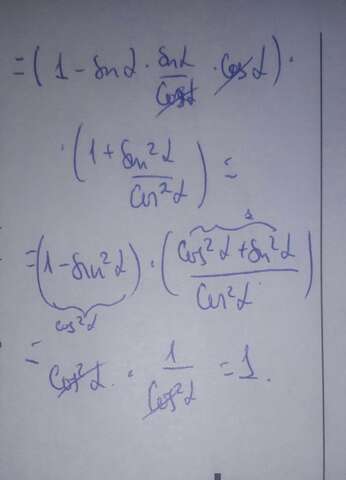 = (1 - sin α · sin α / cos α · cos α) ·
· (1 + sin² α / cos² α) =
= (1 - sin² α) · (cos² α + sin² α / cos² α)
cos² α
1
= cos² α · 1 / cos² α = 1.